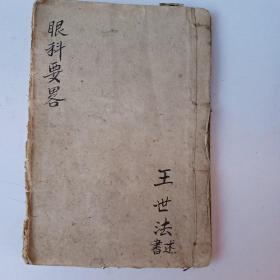 眼科要畧
王世法述書